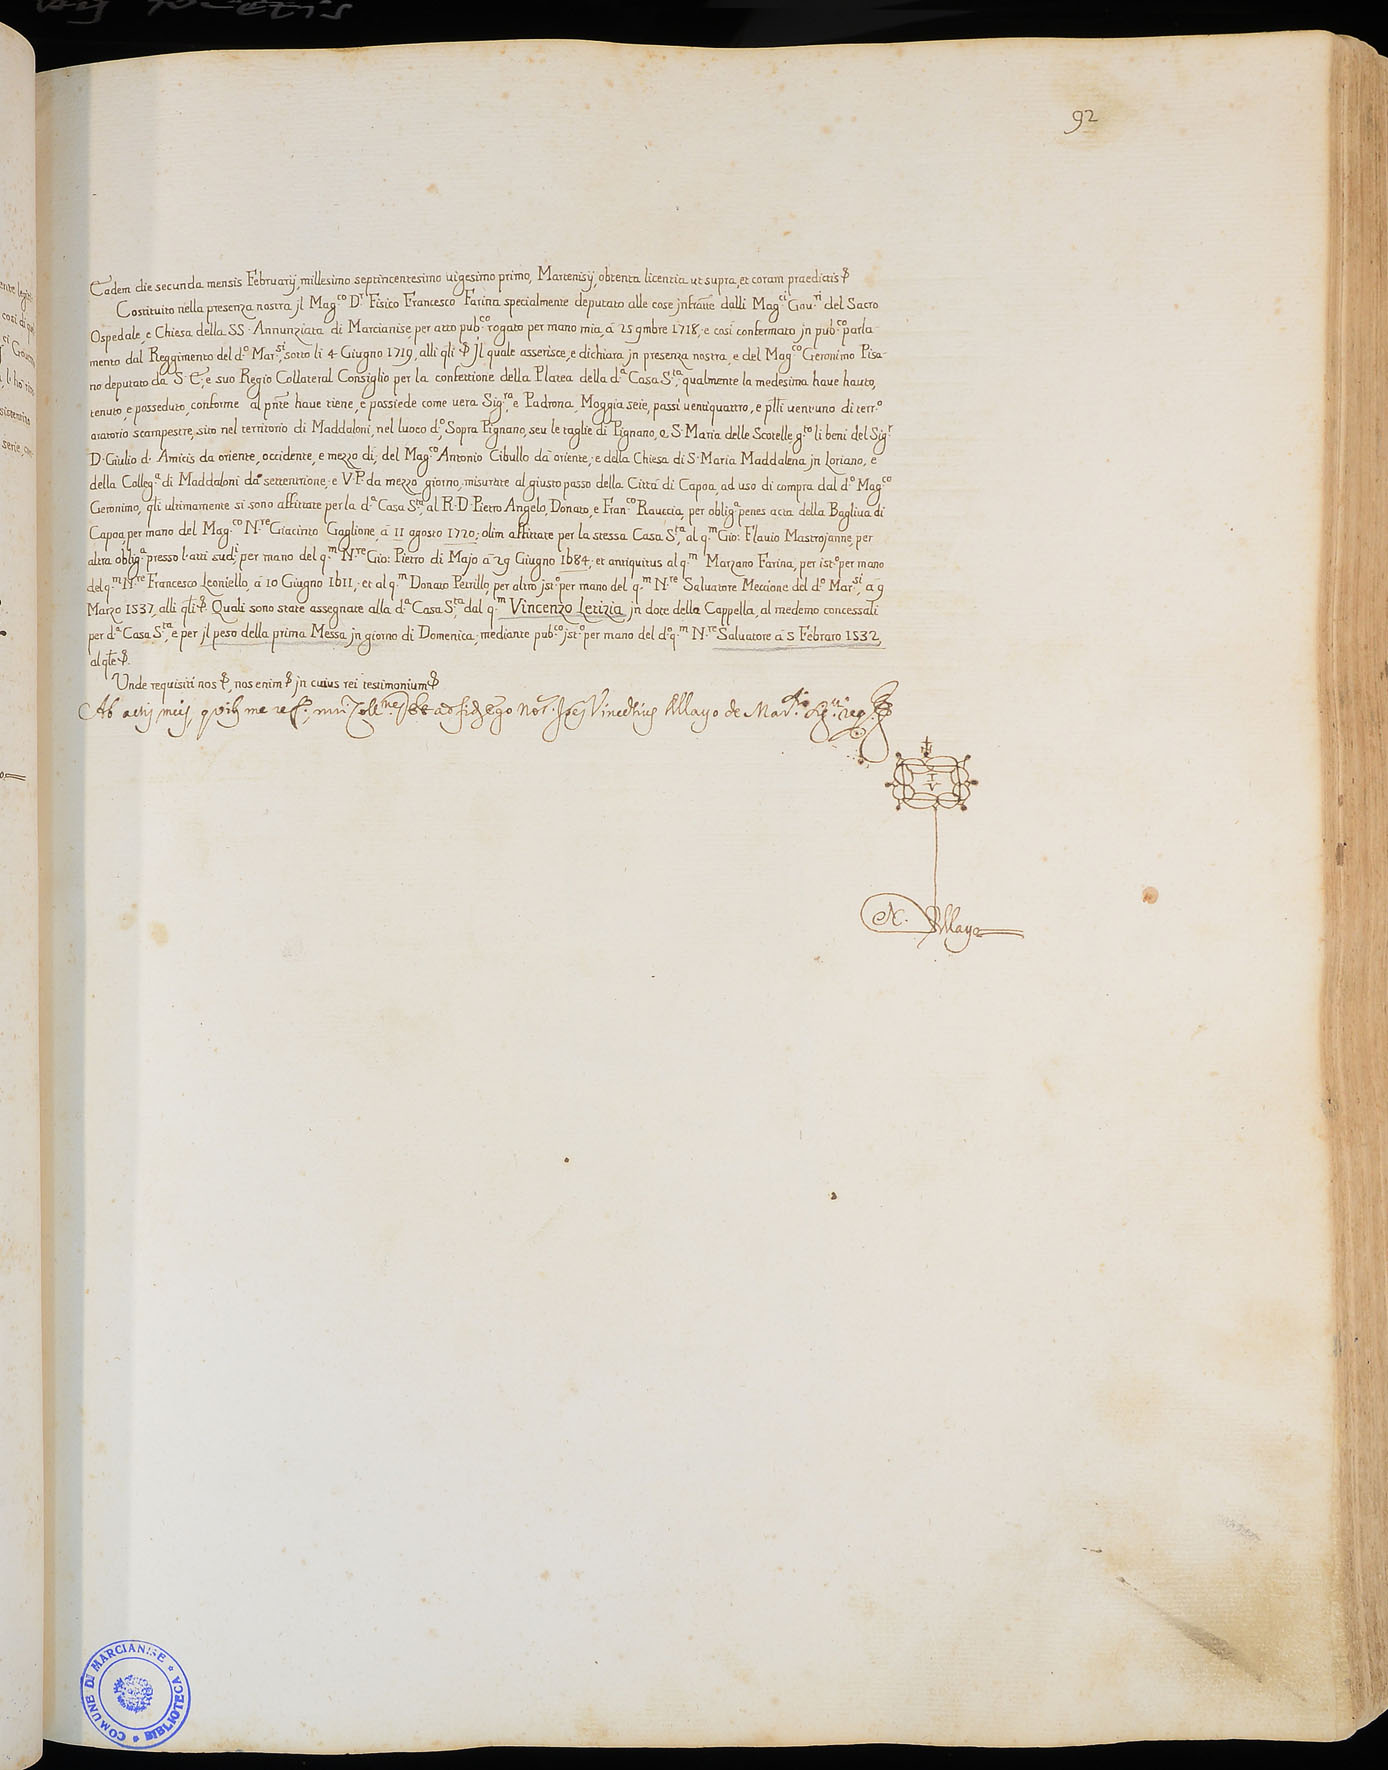 92
Eadem die secunda mensis Februarij, millesimo septincentesimo uigesimo primo, Martenisij, obtenta licentia ut supra, et coram praedictis
Costituito nella presenza nostra jl Mag.co D.r Fisico Francesco Farina specialmente deputato alle cose jnfratte dalli Mag.ci Gou.ri del Sacro
Ospedale, e Chiesa della SS. Annunziata di Marcianise per atto pub.co rogato per mano mia, à 25 9mbre 1718, e così confermato jn pub.co parla-
mento dal Reggimento del d.o Mar.si, sotto li 4 Giugno 1719, alli q̃li Jl quale asserisce, e dichiara jn presenza nostra, e del Mag.co Geronimo Pisa-
no deputato da S. E., e suo Regio Collateral Consiglio per la confettione della Platea della d.a Casa S.ta, qualmente la medesima haue hauto,
tenuto, e posseduto, conforme al p̃nte haue tiene, e possiede come uera Sig.ra, e Padrona, Moggia seie, passi uentiquattro, e p̃lli uent'uno di terr.o
aratorio scampestre, sito nel territorio di Maddaloni, nel luoco d.o Sopra Pignano, seu le taglie di Pignano, e S. Maria delle Scotelle g.to li beni del Sig.r
D. Giulio d. Amicis da oriente, occidente, e mezzo di, del Mag.co Antonio Cibullo da oriente, e della Chiesa di S. Maria Maddalena jn Loriano, e
della Colleg.a di Maddaloni da settentrione, e V.P. da mezzo giorno, misurate al giusto passo della Città di Capoa, ad uso di compra dal d.o Mag.co
Geronimo, q̃li ultimamente si sono affittate per la d.a Casa S.ta, al R. D. Pietro Angelo, Donato, e Fran.co Rauccia, per oblig.a penes acta della Bagliua di
Capoa, per mano del Mag.co N.re Giacinto Gaglione, à 11 agosto 1720; olim affittate per la stessa Casa S.ta, al q.m Gio: Flauio Mastrojanne, per
altra oblig.a presso l'atti sud.i per mano del q.m N.re Gio: Pietro di Majo à 29 Giugno 1684; et antiquitus al q.m Marzano Farina, per ist.o per mano
del q.m N.re Francesco Leoniello, à 10 Giugno 1611; et al q.m Donato Petrillo, per altro jst.o per mano del q.m N.re Saluatore Meccione del d.o Mar.si, à 9
Marzo 1537, alli q̃li. Quali sono state assegnate alla d.a Casa S.ta dal q.m Vincenzo Letizia jn dote della Cappella, al medemo concessali
per d.a Casa S.ta, e per jl peso della prima Messa, jn giorno di Domenica, mediante pub.co jst.o per mano del d.o q.m N.re Saluatore à 5 Febraro 1532,
al q̃le.
Unde requisiti nos, nos enim jn cuius rei testimonium
Ab actis meis, me Ego Not. Vincentius Mayo de
I V
N. Mayo
COMUNE DI MARCIANISE * BIBLIOTECA *